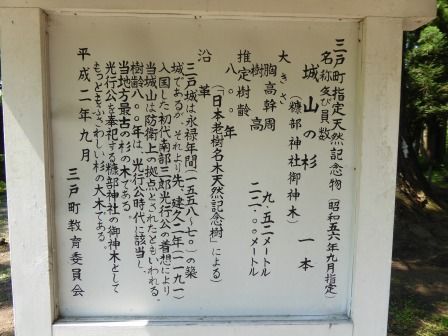 三戸町指定天然記念物(昭和五六年九月指定)
名称及び員数
城山の杉 一本
(糠部神社御神木)
大きさ
胸高幹周 九・五二メートル
樹高 二二・〇〇メートル
推定樹齢
八〇〇年
(「日本老樹名木天然記念樹」による)
沿革
三戸城は永禄年間(一五五八~七〇)の築
城であるが、それより先、建久二年(一一九一)
入国した初代南部三郎光行公の着想により
当城山は防衛上の拠点とされたともいわれる。
樹齢八〇〇年は、光行公時代に該当し、
当地方最古の杉の木である。
光行公を奉祀する糠部神社の御神木として
もっともふさわしい杉の大木である。
平成二年九月
三戸町教育委員会